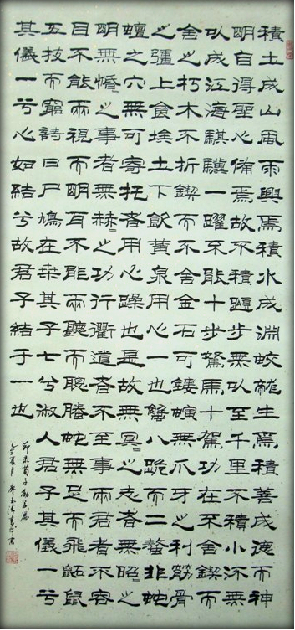 積土成山風雨興焉積水成淵蛟龍生焉積善成德而神
明自得聖心備焉故不積蹞步無以至千里不積小流無
以成江海騏驥一躍不能十步駑馬十駕功在不舍鍥而
舍之朽木不折鍥而不舍金石可鏤螾無爪牙之利筋骨
之彊上食埃土下飲黃泉用心一也蟹八跪而二螯非蛇
蟺之穴無可寄托者用心躁也是故無冥〻之志者無昭〻之
明無惛〻之事者無赫〻之功行衢道者不至事兩君者不容
目不能兩視而明耳不能兩聽而聰螣蛇無足而飛鼫鼠
五技而窮詩曰尸鳩在桑其子七兮淑人君子其儀一兮
其儀一兮心如結兮故君子結于一也
荀子勸學篇